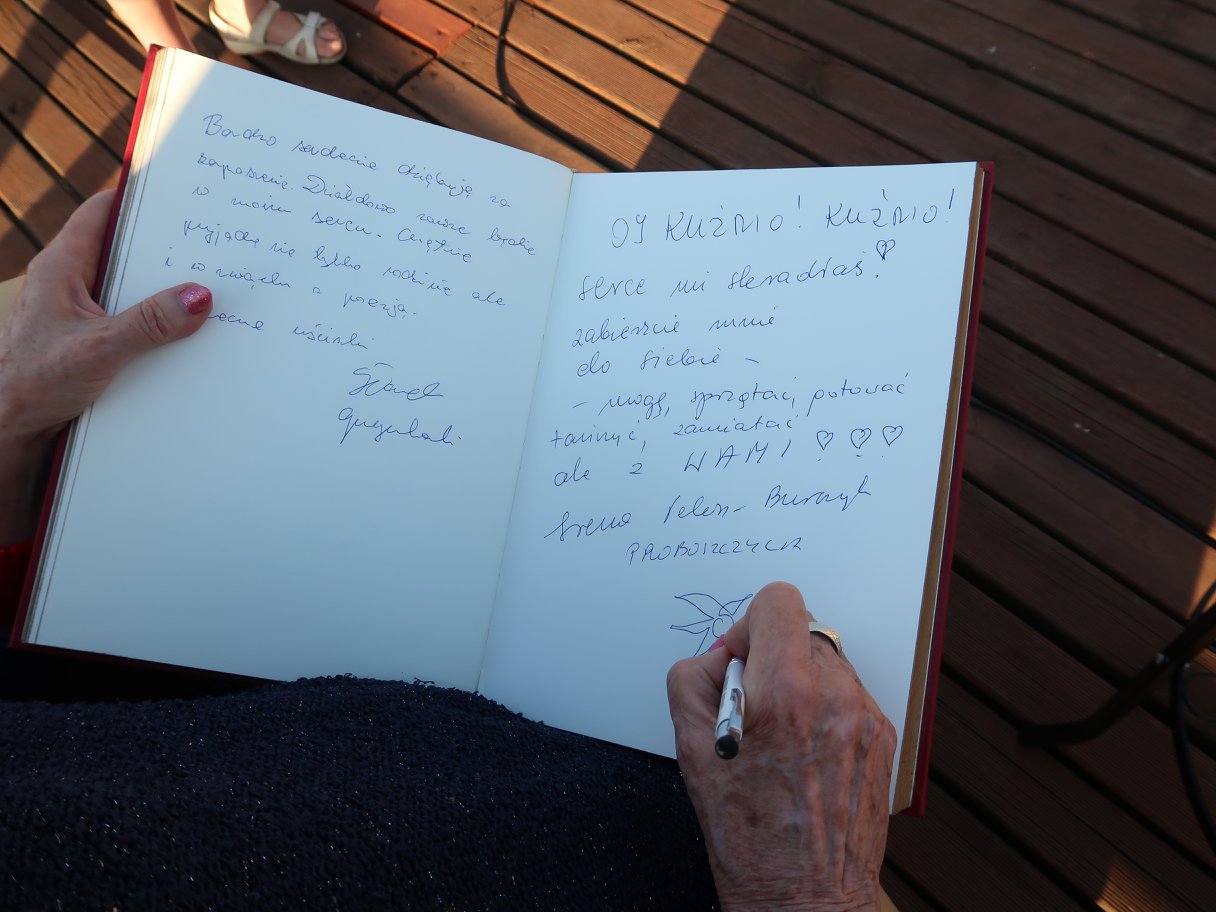 Bardzo serdecznie dziękuję za
zaproszenie. Działdowo zawsze będzie
w moim sercu. Chętnie
przyjadę nie tylko rodzinnie ale
i w związku z poezją.
uściski
OJ KUŹNIO! KUŹNIO!
serce mi skradłaś!
zabierzcie mnie
do siebie –
– mogę, sprzątać, gotować
tańczyć, zamiatać
ale z WAMI!
Irena
PROBOSZCZYCE